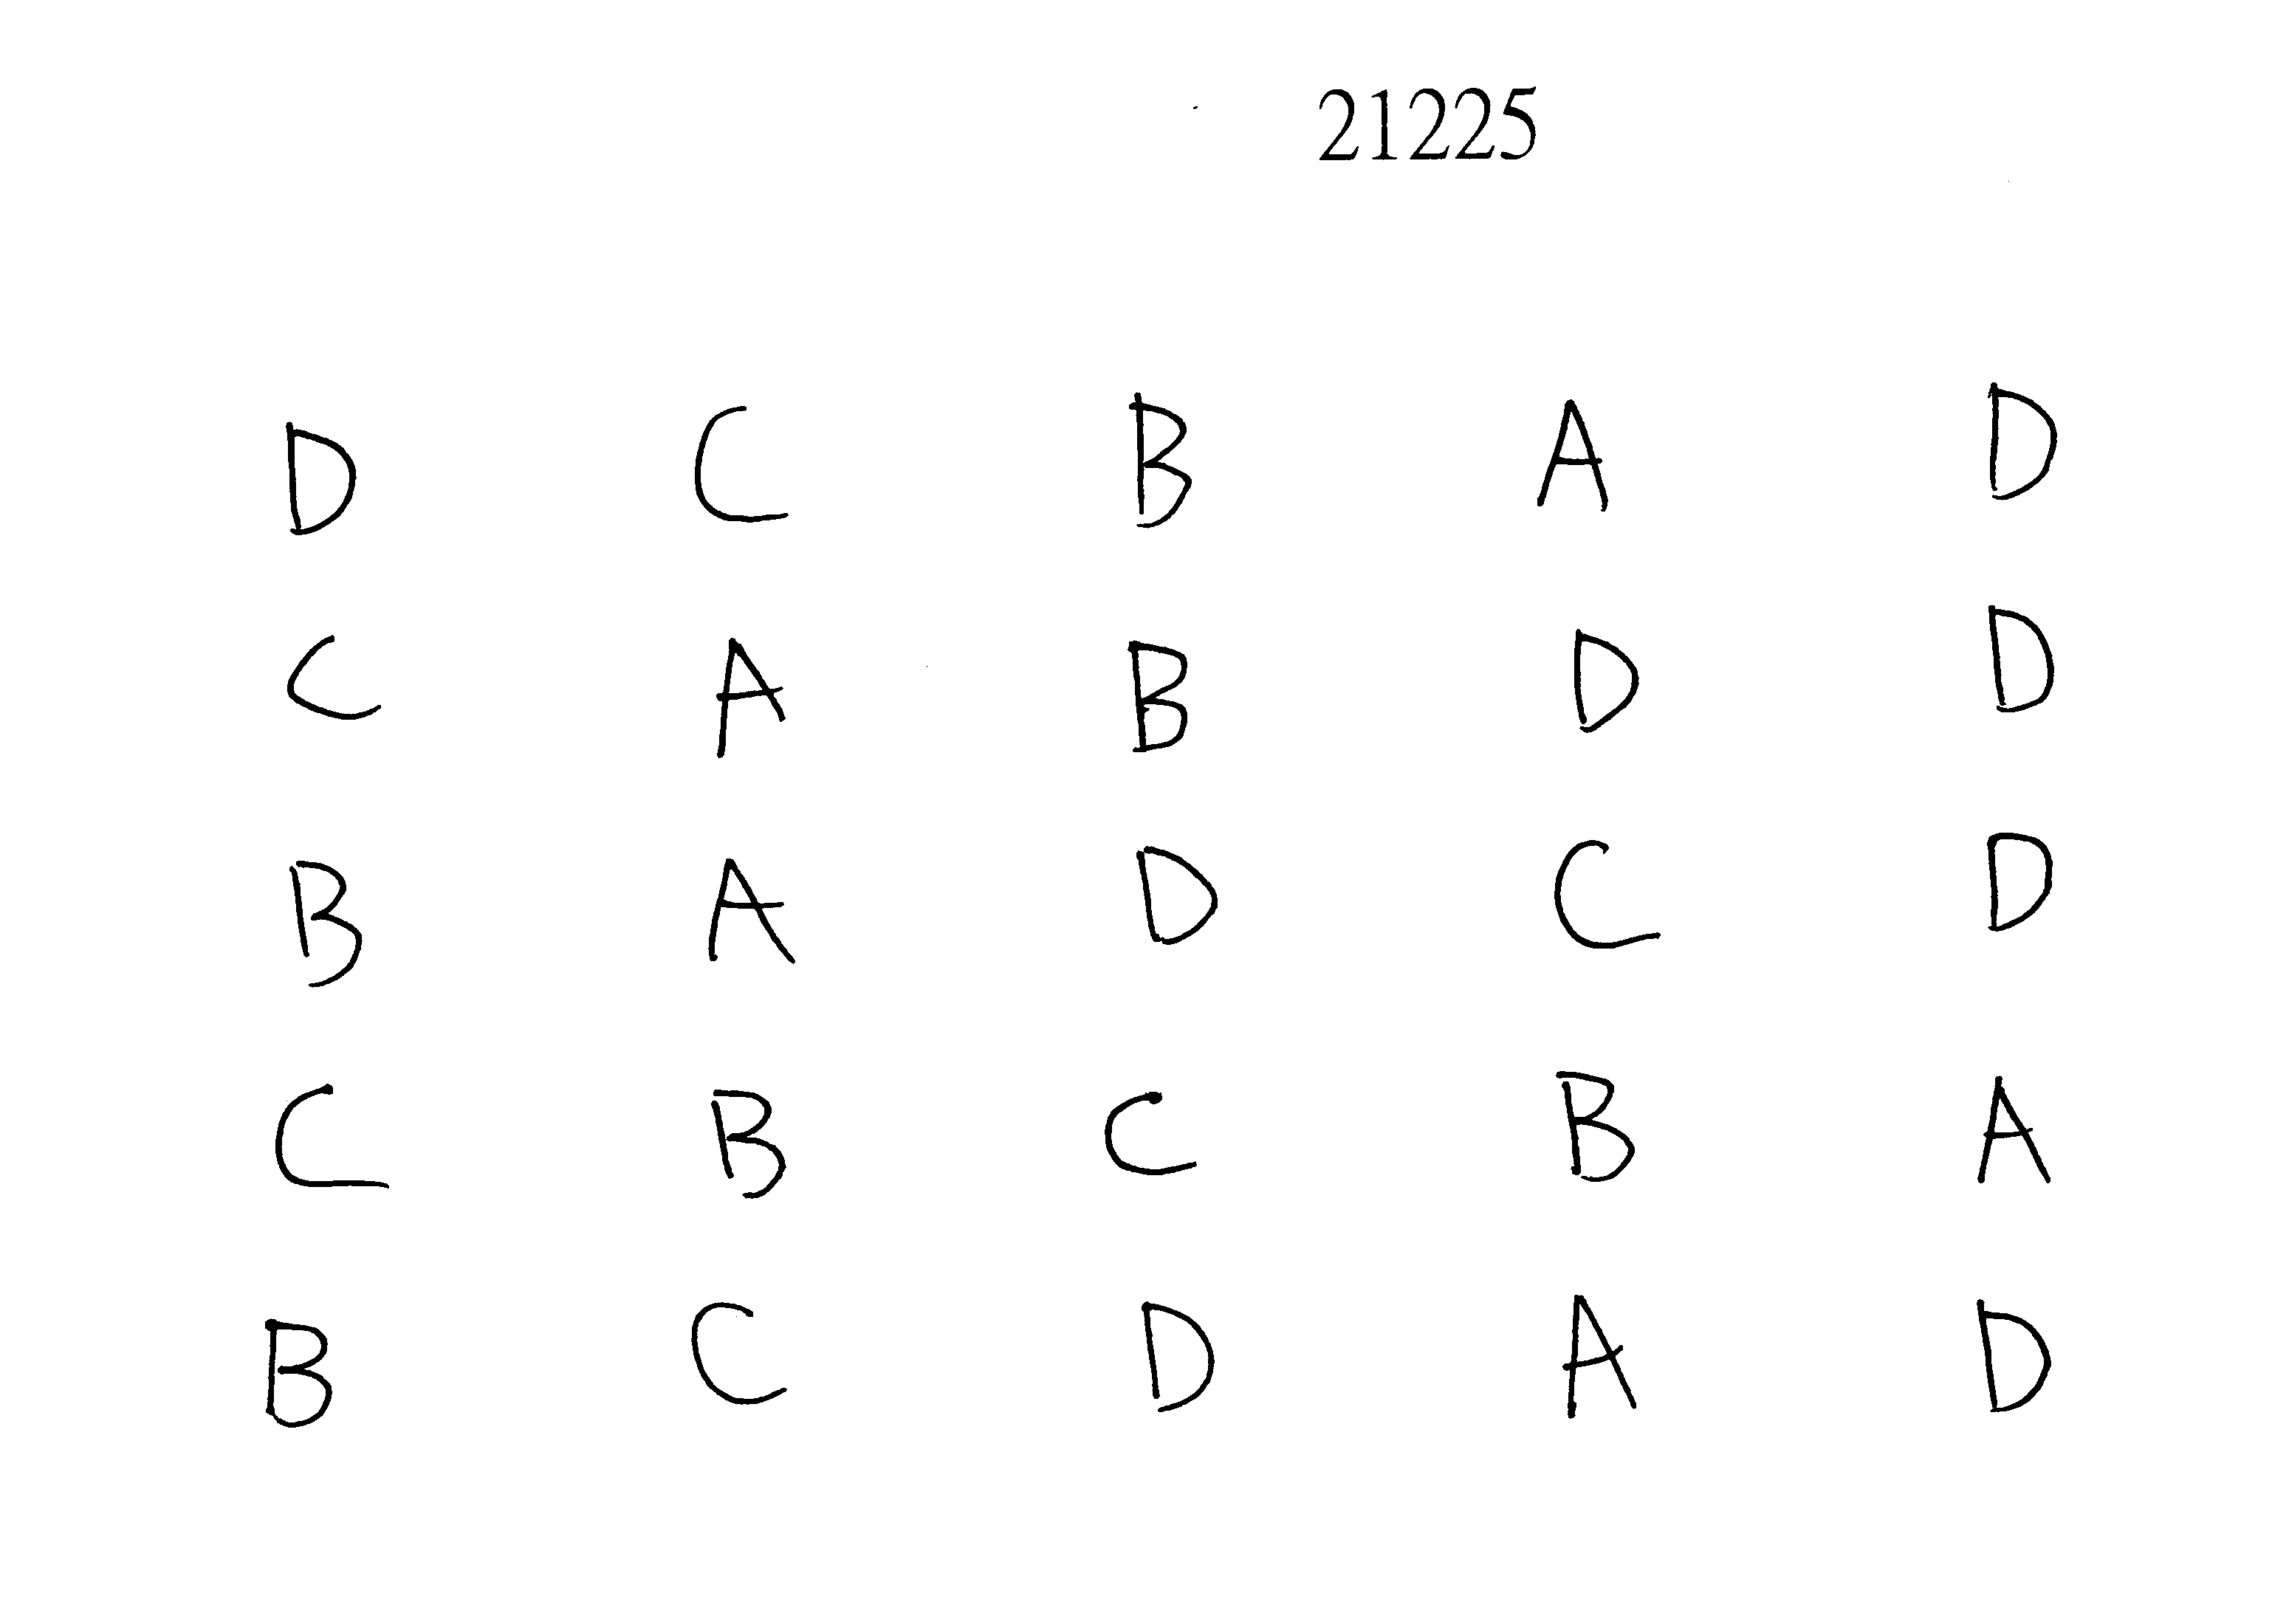 21225
D C B A D
C A B D D
B A D C D
C B C B A
B C D A D